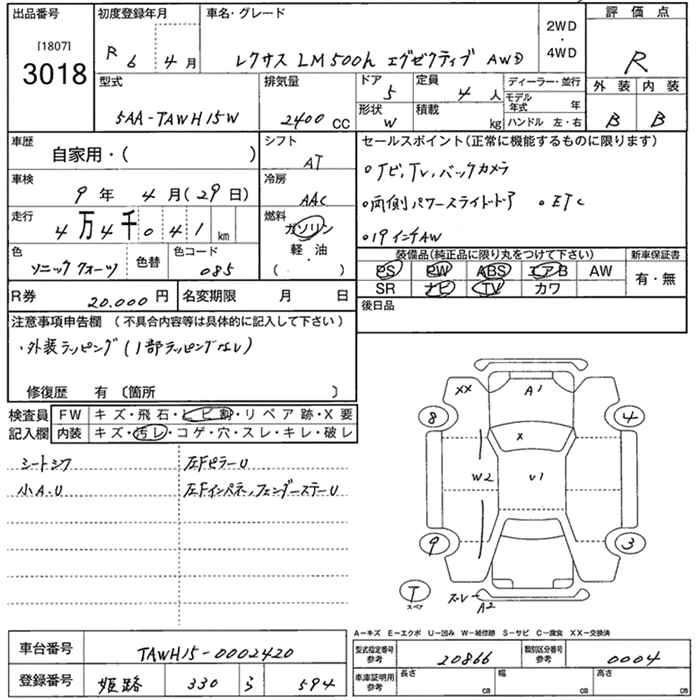 出品番号 初度登録年月 車名・グレード 2WD・4WD 評価点
[1807]
3018
R 6 年 4 月 レクサス LM500h エグゼクティブ AWD R
型式 排気量 ドア 5 定員 4 人 ディーラー・並行 外装 内装
5AA-TAWH15W 2400 CC 形状 W 積載 kg モデル年式 年 ハンドル 左・右 B B
車歴 シフト セールスポイント(正常に機能するものに限ります)
自家用・( ) AT
。ナビ, TV, バックカメラ
車検 冷房
9 年 4 月(29日) AAC
。両側パワースライドドア 。ETC
走行 燃料
4万4千041 km ガソリン
軽油
( ・ )
。19インチAW
色 色替 色コード
ソニック クォーツ 085
装備品(純正品に限り丸をつけて下さい) 新車保証書
PS PW ABS エアB AW 有・無
SR ナビ TV カワ
R券 20.000円 名変期限 月 日 後日品
注意事項申告欄 (不具合内容等は具体的に記入して下さい)
・外装ラッピング(1部ラッピングなし)
修復歴 有 〔箇所 〕
検査員記入欄 FW キズ・飛石・ヒビ割・リペア跡・X要
内装 キズ・汚レ・コゲ・穴・スレ・キレ・破レ
シートシワ 左FピラーU
小A.U 左Fインパネ, フェンダーステーU
XX A1
8 4
X
W2 U1
9 3
T スペア スレー A2
A-キズ E-エクボ U-凹み W-補修跡 S-サビ C-腐食 XX-交換済
車台番号 TAWH15-0002420
型式指定番号 参考 20866 類別区分番号 参考 0004
登録番号 姫路 330 ら 594
車庫証明用 参考 長さ cm 幅 cm 高さ cm